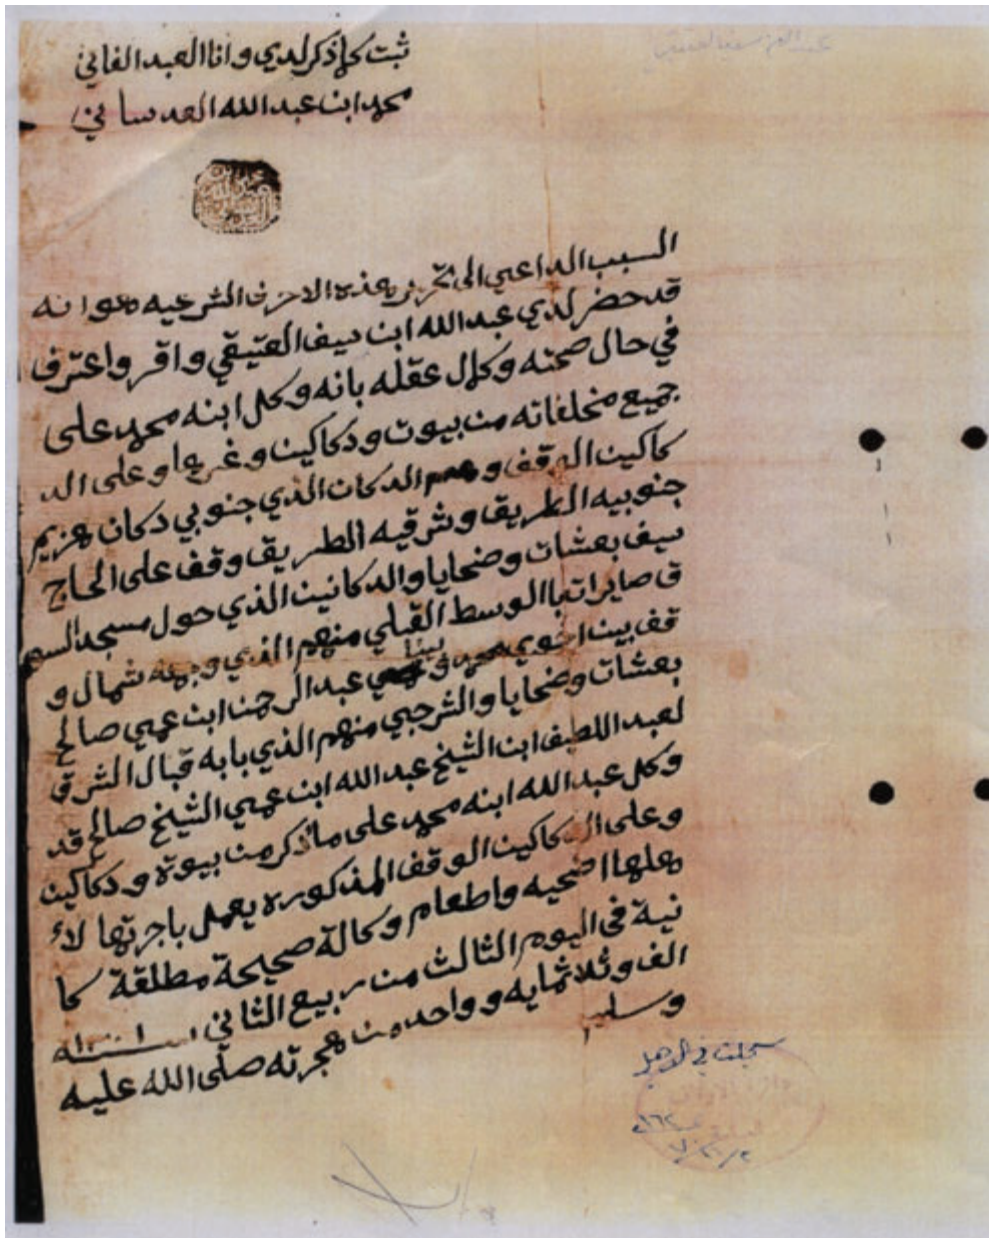 ثبت كلما ذكر لدي وانا العبد الفاني
محمد ابن عبدالله العدساني
السبب الداعي الى تحرير هذه الاحرف الشرعيه هو انه
قد حضر لدي عبدالله ابن سيف العتيقي واقر واعترف
في حال صحته وكمال عقله بانه وكل ابنه محمد على
جميع مخلفاته من بيوت ودكاكين وغيرها وعلى الد
كاكين الوقف وهم الدكان الذي جنوبي دكان هزيم
جنوبيه الطريق وشرقيه الطريق وقف على الحاج
سيف بعشات وضحايا والدكانين الذي حول مسجد السو
ق صايراتبا الوسط القبلي منهم الذي وجهته شمال و
قف بين اخوي محمد وبينا عبدالرحمن ابن عمي صالح
بعشات وضحايا والشرجي منهم الذي بابه قبال الشرق
لعبد اللطيف ابن الشيخ عبدالله ابن عمي الشيخ صالح قد
وكل عبدالله ابنه محمد على ماذكر من بيوته ودكاكين
وعلى الدكاكين الوقف المذكوره يعمل باجرتها لاء
هلها اضحيه واطعام وكالة صحيحة مطلقة كا
نية في اليوم الثالث من ربيع الثاني سنة ١٣٠١
الف وثلاثمايه وواحد من هجرته صلى الله عليه
وسلم
سجلت في الاصل